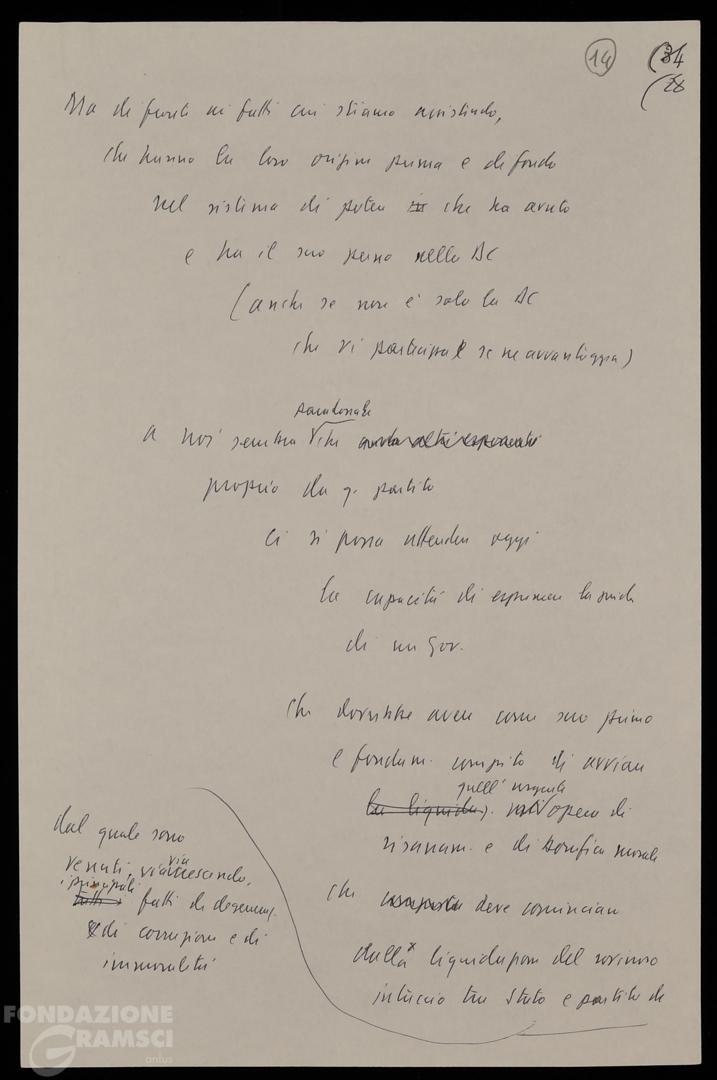 14
(34
(28
Ma di fronte ai fatti cui stiamo assistendo,
che hanno la loro origine prima e di fondo
nel sistema di potere che ha avuto
e ha il suo perno nella DC
(anche se non è solo la DC
che vi partecipa e se ne avvantaggia)
paradossale
a noi sembra che
proprio da q. partito
ci si possa attendere oggi
la capacità di esprimere la guida
di un gov.
che dovrebbe avere come suo primo
e fondam. compito di avviare
quell'urgente
la liquidaz. opera di
risanam. e di bonifica morale
che deve cominciare
dalla x liquidazione del rovinoso
intreccio tra Stato e partito da
dal quale sono
venuti, via via crescendo,
i principali
tutti i fatti di degeneraz.
e di corruzione e di
immoralità
FONDAZIONE
GRAMSCI
onlus